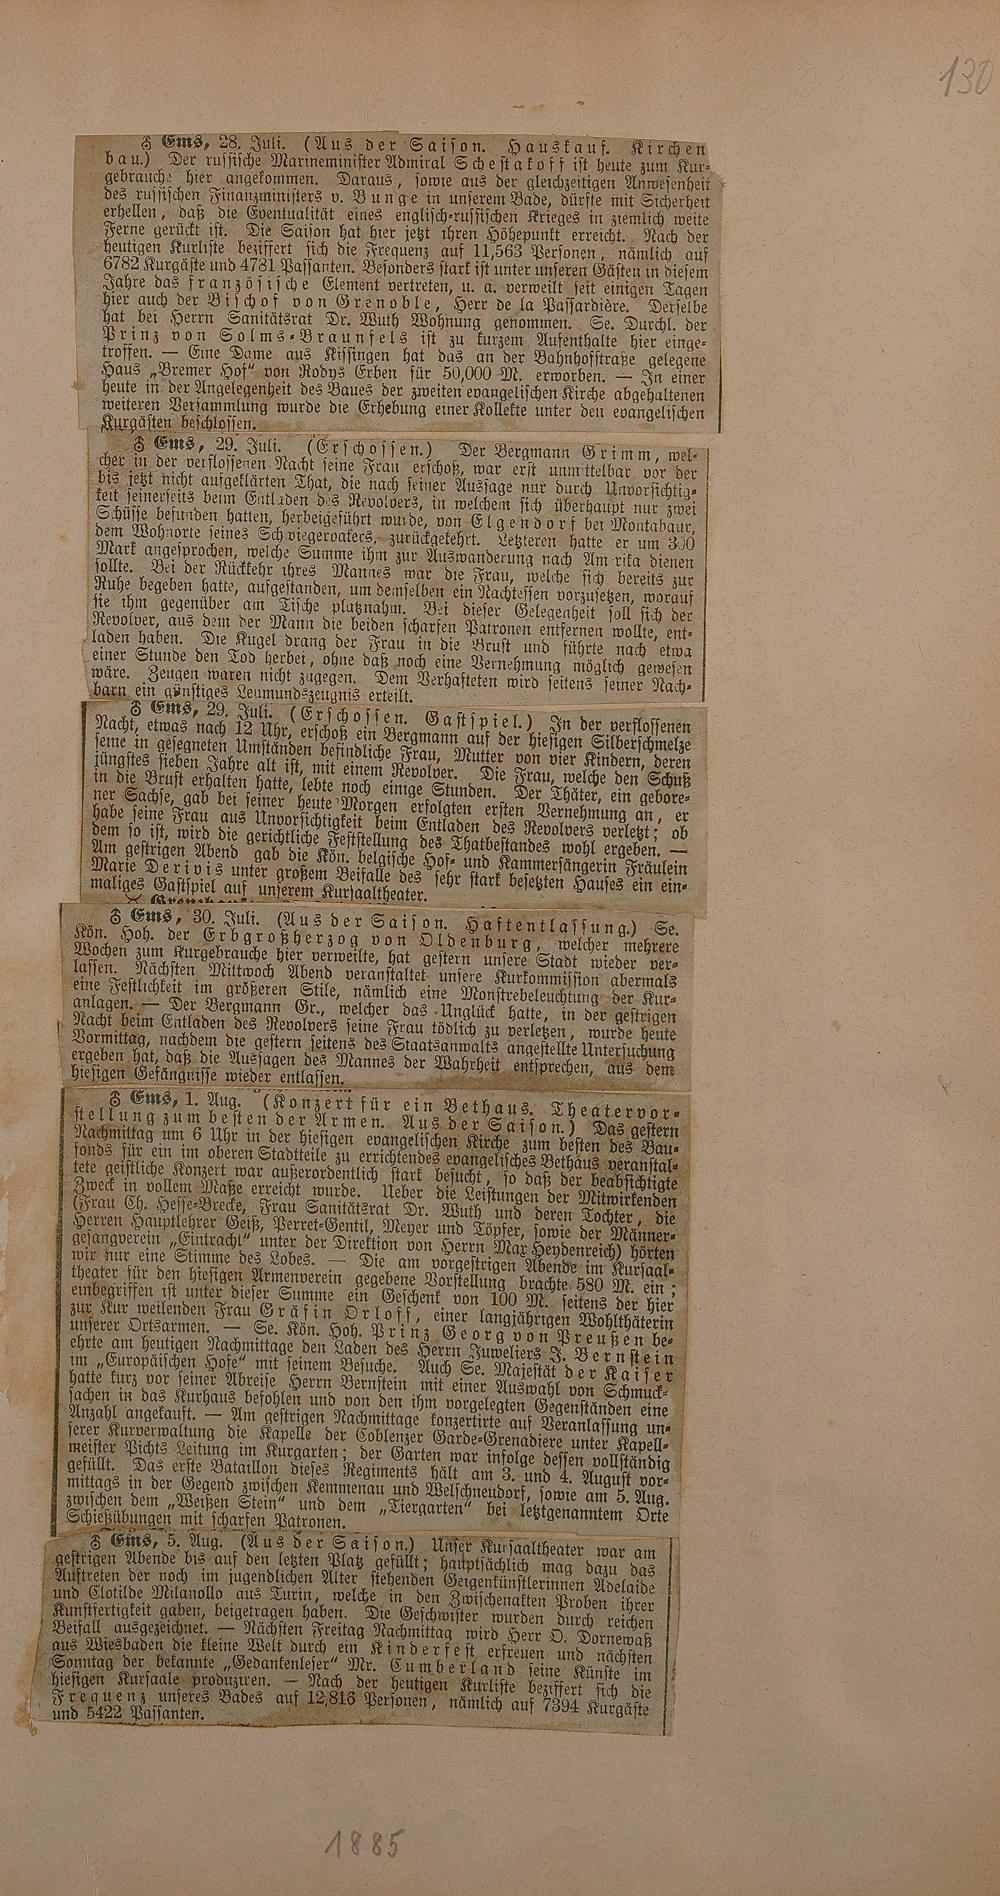 130
♂ Ems, 28. Juli. (Aus der Saison. Hauskauf. Kirchen
bau.) Der russische Marineminister Admiral Schestakoff ist heute zum Kur-
gebrauche hier angekommen. Daraus, sowie aus der gleichzeitigen Anwesenheit
des russischen Finanzministers v. Bunge in unserem Bade, dürfte mit Sicherheit
erhellen, daß die Eventualität eines englisch-russischen Krieges in ziemlich weite
Ferne gerückt ist. Die Saison hat hier jetzt ihren Höhepunkt erreicht. Nach der
heutigen Kurliste beziffert sich die Frequenz auf 11,563 Personen, nämlich auf
6782 Kurgäste und 4781 Passanten. Besonders stark ist unter unseren Gästen in diesem
Jahre das französische Element vertreten, u. a. verweilt seit einigen Tagen
hier auch der Bischof von Grenoble, Herr de la Passardière. Derselbe
hat bei Herrn Sanitätsrat Dr. Wuth Wohnung genommen. Se. Durchl. der
Prinz von Solms-Braunfels ist zu kurzem Aufenthalte hier einge-
troffen. — Eine Dame aus Kissingen hat das an der Bahnhofstraße gelegene
Haus „Bremer Hof“ von Rodys Erben für 50,000 M. erworben. — In einer
heute in der Angelegenheit des Baues der zweiten evangelischen Kirche abgehaltenen
weiteren Versammlung wurde die Erhebung einer Kollekte unter den evangelischen
Kurgästen beschlossen.
♂ Ems, 29. Juli. (Erschossen.) Der Bergmann Grimm, wel-
cher in der verflossenen Nacht seine Frau erschoß, war erst unmittelbar vor der
bis jetzt nicht aufgeklärten That, die nach seiner Aussage nur durch Unvorsichtig-
keit seinerseits beim Entladen des Revolvers, in welchem sich überhaupt nur zwei
Schüsse befunden hatten, herbeigeführt wurde, von Elgendorf bei Montabaur,
dem Wohnorte seines Schwiegervaters, zurückgekehrt. Letzteren hatte er um 300
Mark angesprochen, welche Summe ihm zur Auswanderung nach Am rika dienen
sollte. Bei der Rückkehr ihres Mannes war die Frau, welche sich bereits zur
Ruhe begeben hatte, aufgestanden, um demselben ein Nachtessen vorzusetzen, worauf
sie ihm gegenüber am Tische platznahm. Bei dieser Gelegenheit soll sich der
Revolver, aus dem der Mann die beiden scharfen Patronen entfernen wollte, ent-
laden haben. Die Kugel drang der Frau in die Brust und führte nach etwa
einer Stunde den Tod herbei, ohne daß noch eine Vernehmung möglich gewesen
wäre. Zeugen waren nicht zugegen. Dem Verhafteten wird seitens seiner Nach-
barn ein günstiges Leumundszeugnis erteilt.
♂ Ems, 29. Juli. (Erschossen. Gastspiel.) In der verflossenen
Nacht, etwas nach 12 Uhr, erschoß ein Bergmann auf der hiesigen Silberschmelze
seine in gesegneten Umständen befindliche Frau, Mutter von vier Kindern, deren
jüngstes sieben Jahre alt ist, mit einem Revolver. Die Frau, welche den Schuß
in die Brust erhalten hatte, lebte noch einige Stunden. Der Thäter, ein gebore-
ner Sachse, gab bei seiner heute Morgen erfolgten ersten Vernehmung an, er
habe seine Frau aus Unvorsichtigkeit beim Entladen des Revolvers verletzt; ob
dem so ist, wird die gerichtliche Feststellung des Thatbestandes wohl ergeben. —
Am gestrigen Abend gab die Kön. belgische Hof- und Kammersängerin Fräulein
Marie Derivis unter großem Beifalle des sehr stark besetzten Hauses ein ein-
maliges Gastspiel auf unserem Kursaaltheater.
♂ Ems, 30. Juli. (Aus der Saison. Haftentlassung.) Se.
Kön. Hoh. der Erbgroßherzog von Oldenburg, welcher mehrere
Wochen zum Kurgebrauche hier verweilte, hat gestern unsere Stadt wieder ver-
lassen. Nächsten Mittwoch Abend veranstaltet unsere Kurkommission abermals
eine Festlichkeit im größeren Stile, nämlich eine Monstrebeleuchtung der Kur-
anlagen. — Der Bergmann Gr., welcher das Unglück hatte, in der gestrigen
Nacht beim Entladen des Revolvers seine Frau tödlich zu verletzen, wurde heute
Vormittag, nachdem die gestern seitens des Staatsanwalts angestellte Untersuchung
ergeben hat, daß die Aussagen des Mannes der Wahrheit entsprechen, aus dem
hiesigen Gefängnisse wieder entlassen.
♂ Ems, 1. Aug. (Konzert für ein Bethaus. Theatervor-
stellung zum besten der Armen. Aus der Saison.) Das gestern
Nachmittag um 6 Uhr in der hiesigen evangelischen Kirche zum besten des Bau-
fonds für ein im oberen Stadtteile zu errichtendes evangelisches Bethaus veranstal-
tete geistliche Konzert war außerordentlich stark besucht, so daß der beabsichtigte
Zweck in vollem Maße erreicht wurde. Ueber die Leistungen der Mitwirkenden
(Frau Ch. Hesse-Brecke, Frau Sanitätsrat Dr. Wuth und deren Tochter, die
Herren Hauptlehrer Geiß, Perret-Gentil, Meyer und Töpfer, sowie der Männer-
gesangverein „Eintracht“ unter der Direktion von Herrn Max Heydenreich) hörten
wir nur eine Stimme des Lobes. — Die am vorgestrigen Abende im Kursaal-
theater für den hiesigen Armenverein gegebene Vorstellung brachte 580 M. ein;
einbegriffen ist unter dieser Summe ein Geschenk von 100 M. seitens der hier
zur Kur weilenden Frau Gräfin Orloff, einer langjährigen Wohlthäterin
unserer Ortsarmen. — Se. Kön. Hoh. Prinz Georg von Preußen be-
ehrte am heutigen Nachmittage den Laden des Herrn Juweliers J. Bernstein
im „Europäischen Hofe“ mit seinem Besuche. Auch Se. Majestät der Kaiser
hatte kurz vor seiner Abreise Herrn Bernstein mit einer Auswahl von Schmuck-
sachen in das Kurhaus befohlen und von den ihm vorgelegten Gegenständen eine
Anzahl angekauft. — Am gestrigen Nachmittage konzertirte auf Veranlassung un-
serer Kurverwaltung die Kapelle der Coblenzer Garde-Grenadiere unter Kapell-
meister Pichts Leitung im Kurgarten; der Garten war infolge dessen vollständig
gefüllt. Das erste Bataillon dieses Regiments hält am 3. und 4. August vor-
mittags in der Gegend zwischen Kemmenau und Welschneudorf, sowie am 5. Aug.
zwischen dem „Weißen Stein“ und dem „Tiergarten“ bei letztgenanntem Orte
Schießübungen mit scharfen Patronen.
♂ Ems, 5. Aug. (Aus der Saison.) Unser Kursaaltheater war am
gestrigen Abende bis auf den letzten Platz gefüllt; hauptsächlich mag dazu das
Auftreten der noch im jugendlichen Alter stehenden Geigenkünstlerinnen Adelaide
und Clotilde Milanollo aus Turin, welche in den Zwischenakten Proben ihrer
Kunstfertigkeit gaben, beigetragen haben. Die Geschwister wurden durch reichen
Beifall ausgezeichnet. — Nächsten Freitag Nachmittag wird Herr O. Dornewaß
aus Wiesbaden die kleine Welt durch ein Kinderfest erfreuen und nächsten
Sonntag der bekannte „Gedankenleser“ Mr. Cumberland seine Künste im
hiesigen Kursaale produziren. — Nach der heutigen Kurliste beziffert sich die
Frequenz unseres Bades auf 12,816 Personen, nämlich auf 7394 Kurgäste
und 5422 Passanten.
1885